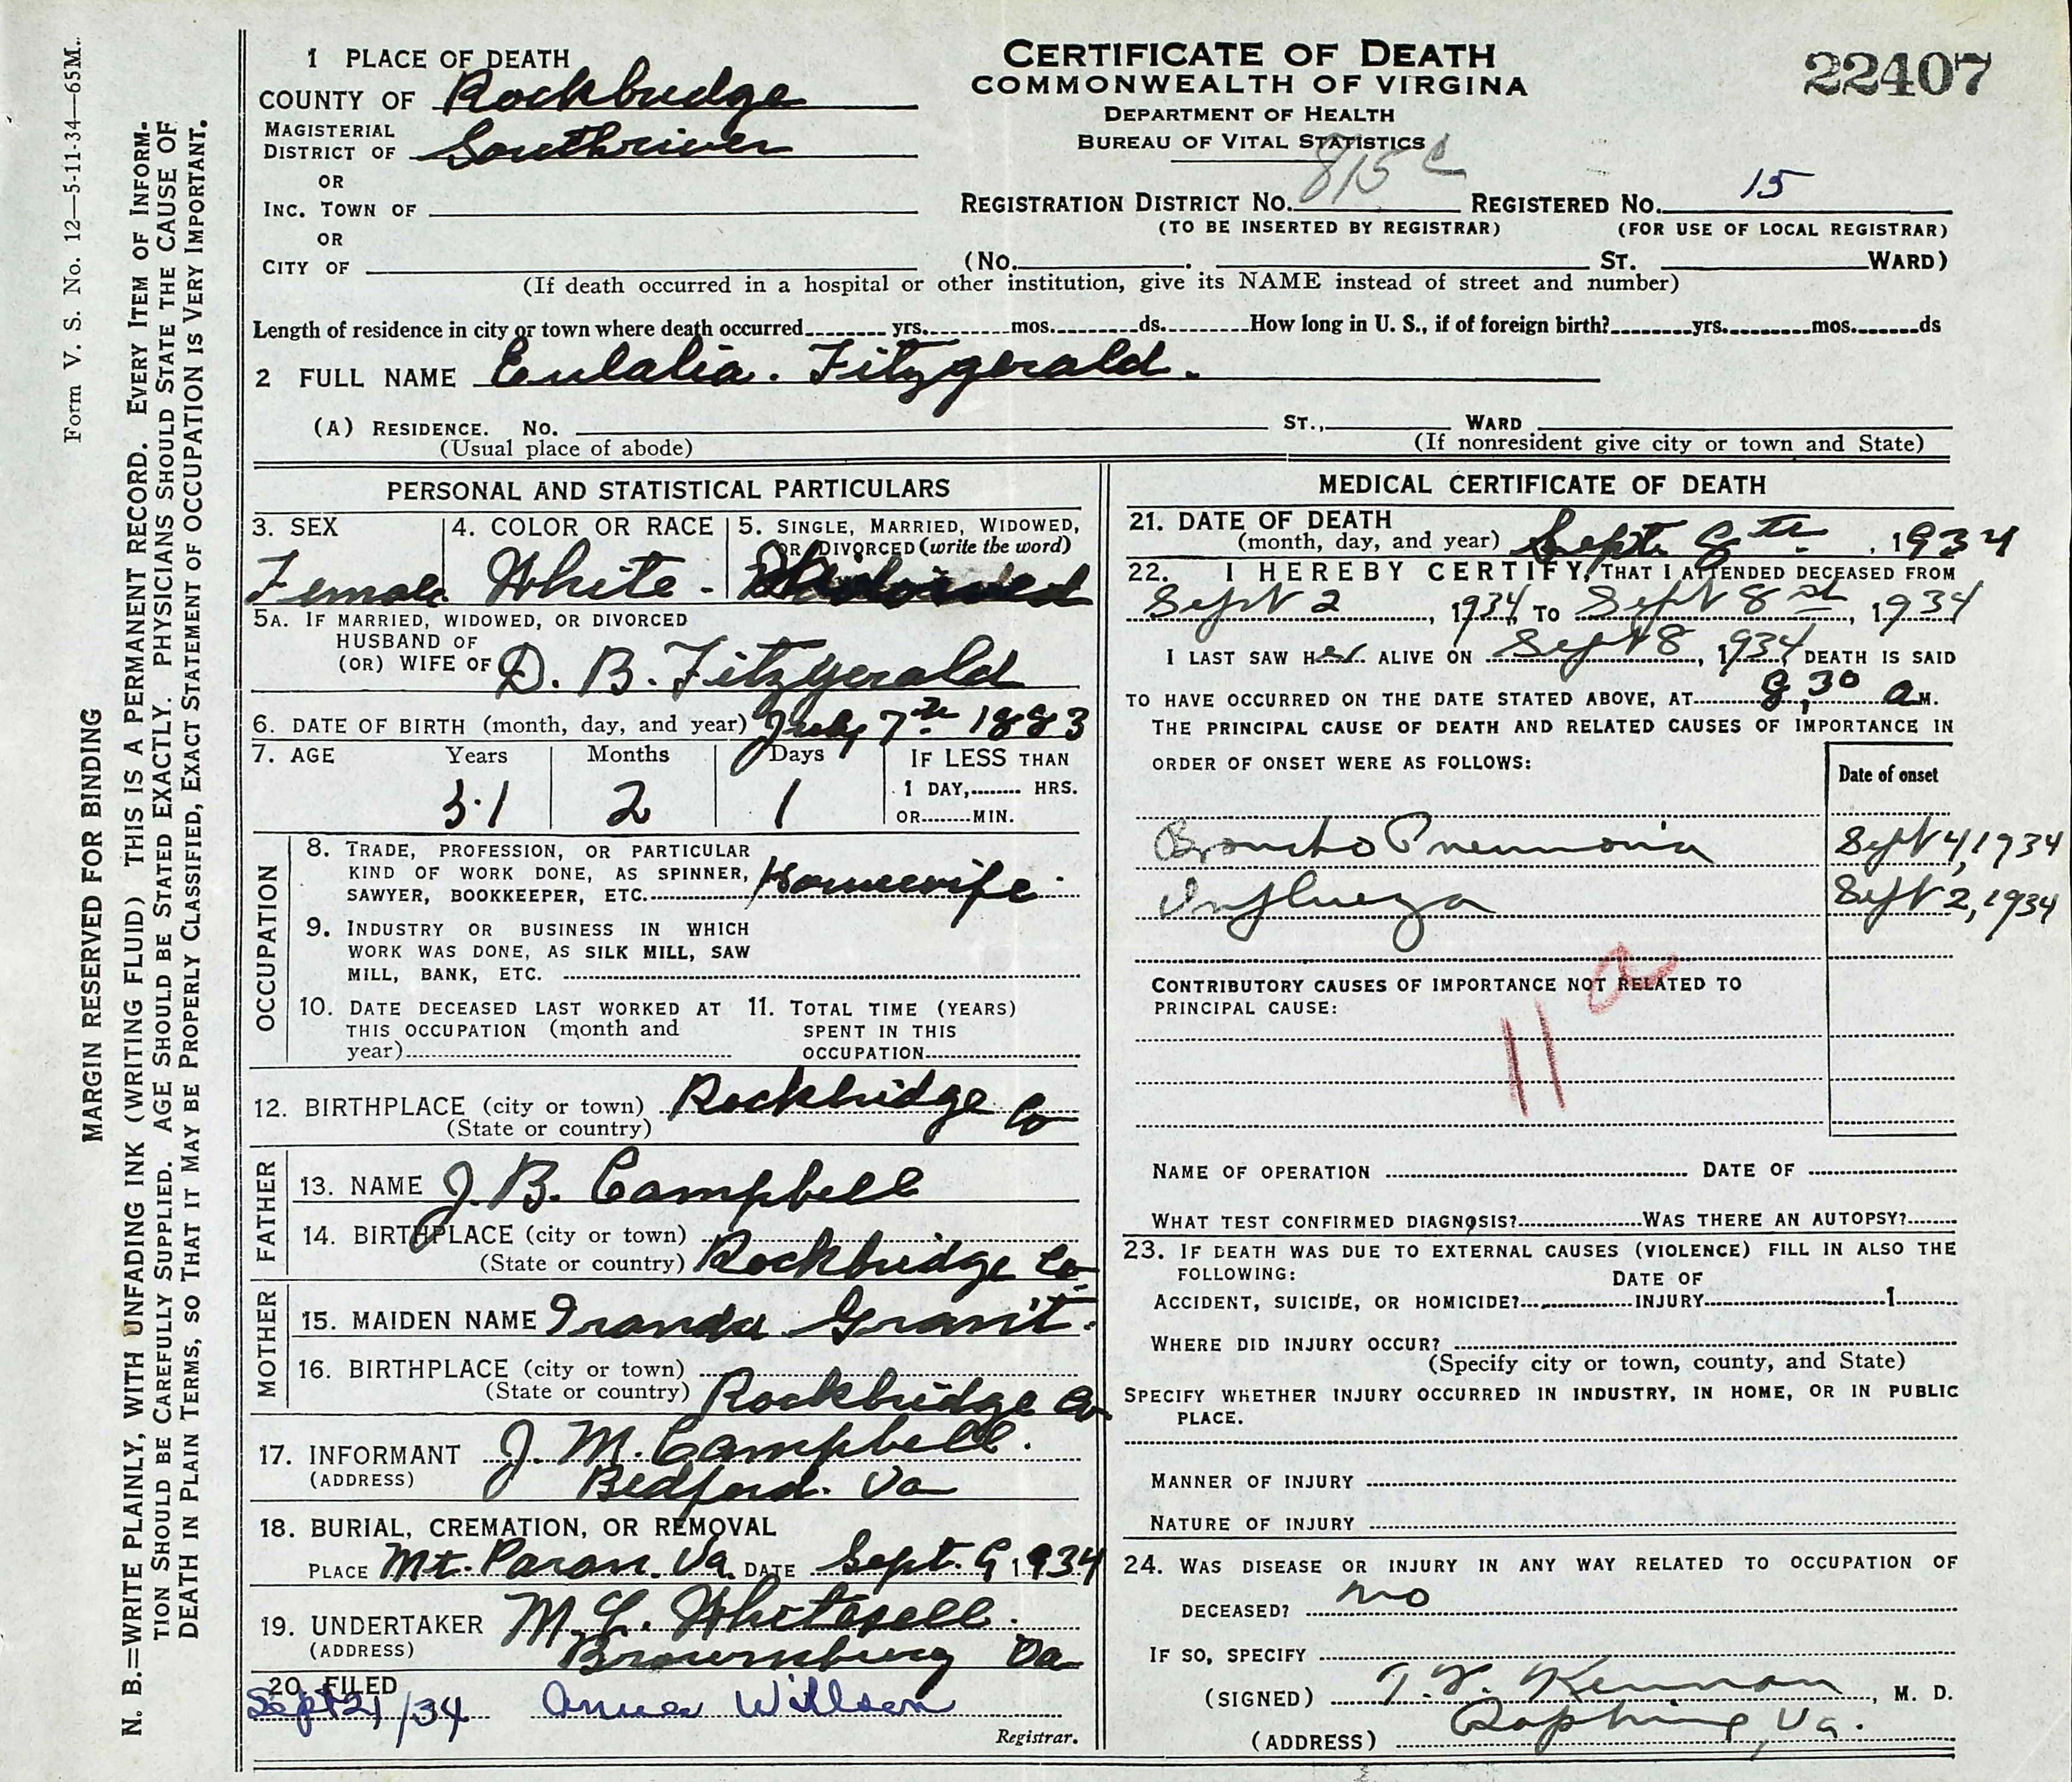 Form V. S. No. 12—5-11-34—65M.
MARGIN RESERVED FOR BINDING
N. B.=WRITE PLAINLY, WITH UNFADING INK (WRITING FLUID) THIS IS A PERMANENT RECORD. EVERY ITEM OF INFORM-
TION SHOULD BE CAREFULLY SUPPLIED. AGE SHOULD BE STATED EXACTLY. PHYSICIANS SHOULD STATE THE CAUSE OF
DEATH IN PLAIN TERMS, SO THAT IT MAY BE PROPERLY CLASSIFIED, EXACT STATEMENT OF OCCUPATION IS VERY IMPORTANT.
CERTIFICATE OF DEATH
COMMONWEALTH OF VIRGINA
DEPARTMENT OF HEALTH
BUREAU OF VITAL STATISTICS
22407
1 PLACE OF DEATH
COUNTY OF Rockbridge
MAGISTERIAL
DISTRICT OF Southriver
OR
INC. TOWN OF
OR
CITY OF
REGISTRATION DISTRICT NO. 815 C REGISTERED NO. 15
(TO BE INSERTED BY REGISTRAR) (FOR USE OF LOCAL REGISTRAR)
(NO. ST. WARD)
(If death occurred in a hospital or other institution, give its NAME instead of street and number)
Length of residence in city or town where death occurred yrs. mos. ds. How long in U. S., if of foreign birth? yrs. mos. ds
2 FULL NAME Eulalia. Fitzgerald.
(A) RESIDENCE. NO. ST., WARD
(Usual place of abode) (If nonresident give city or town and State)
PERSONAL AND STATISTICAL PARTICULARS
3. SEX 4. COLOR OR RACE 5. SINGLE, MARRIED, WIDOWED,
OR DIVORCED (write the word)
Female White - Widowed
5A. IF MARRIED, WIDOWED, OR DIVORCED
HUSBAND OF
(OR) WIFE OF D. B. Fitzgerald
6. DATE OF BIRTH (month, day, and year) July 7th 1883
7. AGE Years Months Days IF LESS THAN
1 DAY, HRS.
51 2 1 OR MIN.
OCCUPATION
8. TRADE, PROFESSION, OR PARTICULAR
KIND OF WORK DONE, AS SPINNER,
SAWYER, BOOKKEEPER, ETC. Housewife
9. INDUSTRY OR BUSINESS IN WHICH
WORK WAS DONE, AS SILK MILL, SAW
MILL, BANK, ETC.
10. DATE DECEASED LAST WORKED AT 11. TOTAL TIME (YEARS)
THIS OCCUPATION (month and SPENT IN THIS
year) OCCUPATION
12. BIRTHPLACE (city or town) Rockbridge Co
(State or country)
FATHER
13. NAME J. B. Campbell
14. BIRTHPLACE (city or town)
(State or country) Rockbridge Co.
MOTHER
15. MAIDEN NAME Granit.
16. BIRTHPLACE (city or town)
(State or country) Rockbridge Co
17. INFORMANT J. M. Campbell.
(ADDRESS) Bedford. Va
18. BURIAL, CREMATION, OR REMOVAL
PLACE Mt. Paran. Va. DATE Sept. 9 1934
19. UNDERTAKER M. L. Whitesell.
(ADDRESS) Brownsburg Va
20. FILED
Sept 21/34 Willson
Registrar.
MEDICAL CERTIFICATE OF DEATH
21. DATE OF DEATH
(month, day, and year) Sept. 8th. , 1934
22. I HEREBY CERTIFY, THAT I ATTENDED DECEASED FROM
Sept 2, 1934 TO Sept 8, 1934
I LAST SAW Her ALIVE ON Sept 8, 1934 DEATH IS SAID
TO HAVE OCCURRED ON THE DATE STATED ABOVE, AT 8,30 a M.
THE PRINCIPAL CAUSE OF DEATH AND RELATED CAUSES OF IMPORTANCE IN
ORDER OF ONSET WERE AS FOLLOWS: Date of onset
Broncho Pneumonia Sept 4, 1934
Influeza Sept 2, 1934
CONTRIBUTORY CAUSES OF IMPORTANCE NOT RELATED TO
PRINCIPAL CAUSE:
11 a
NAME OF OPERATION DATE OF
WHAT TEST CONFIRMED DIAGNOSIS? WAS THERE AN AUTOPSY?
23. IF DEATH WAS DUE TO EXTERNAL CAUSES (VIOLENCE) FILL IN ALSO THE
FOLLOWING: DATE OF
ACCIDENT, SUICIDE, OR HOMICIDE? INJURY 1
WHERE DID INJURY OCCUR?
(Specify city or town, county, and State)
SPECIFY WHETHER INJURY OCCURRED IN INDUSTRY, IN HOME, OR IN PUBLIC
PLACE.
MANNER OF INJURY
NATURE OF INJURY
24. WAS DISEASE OR INJURY IN ANY WAY RELATED TO OCCUPATION OF
DECEASED? no
IF SO, SPECIFY
(SIGNED) Kennan, M. D.
(ADDRESS) Raphine, Va.